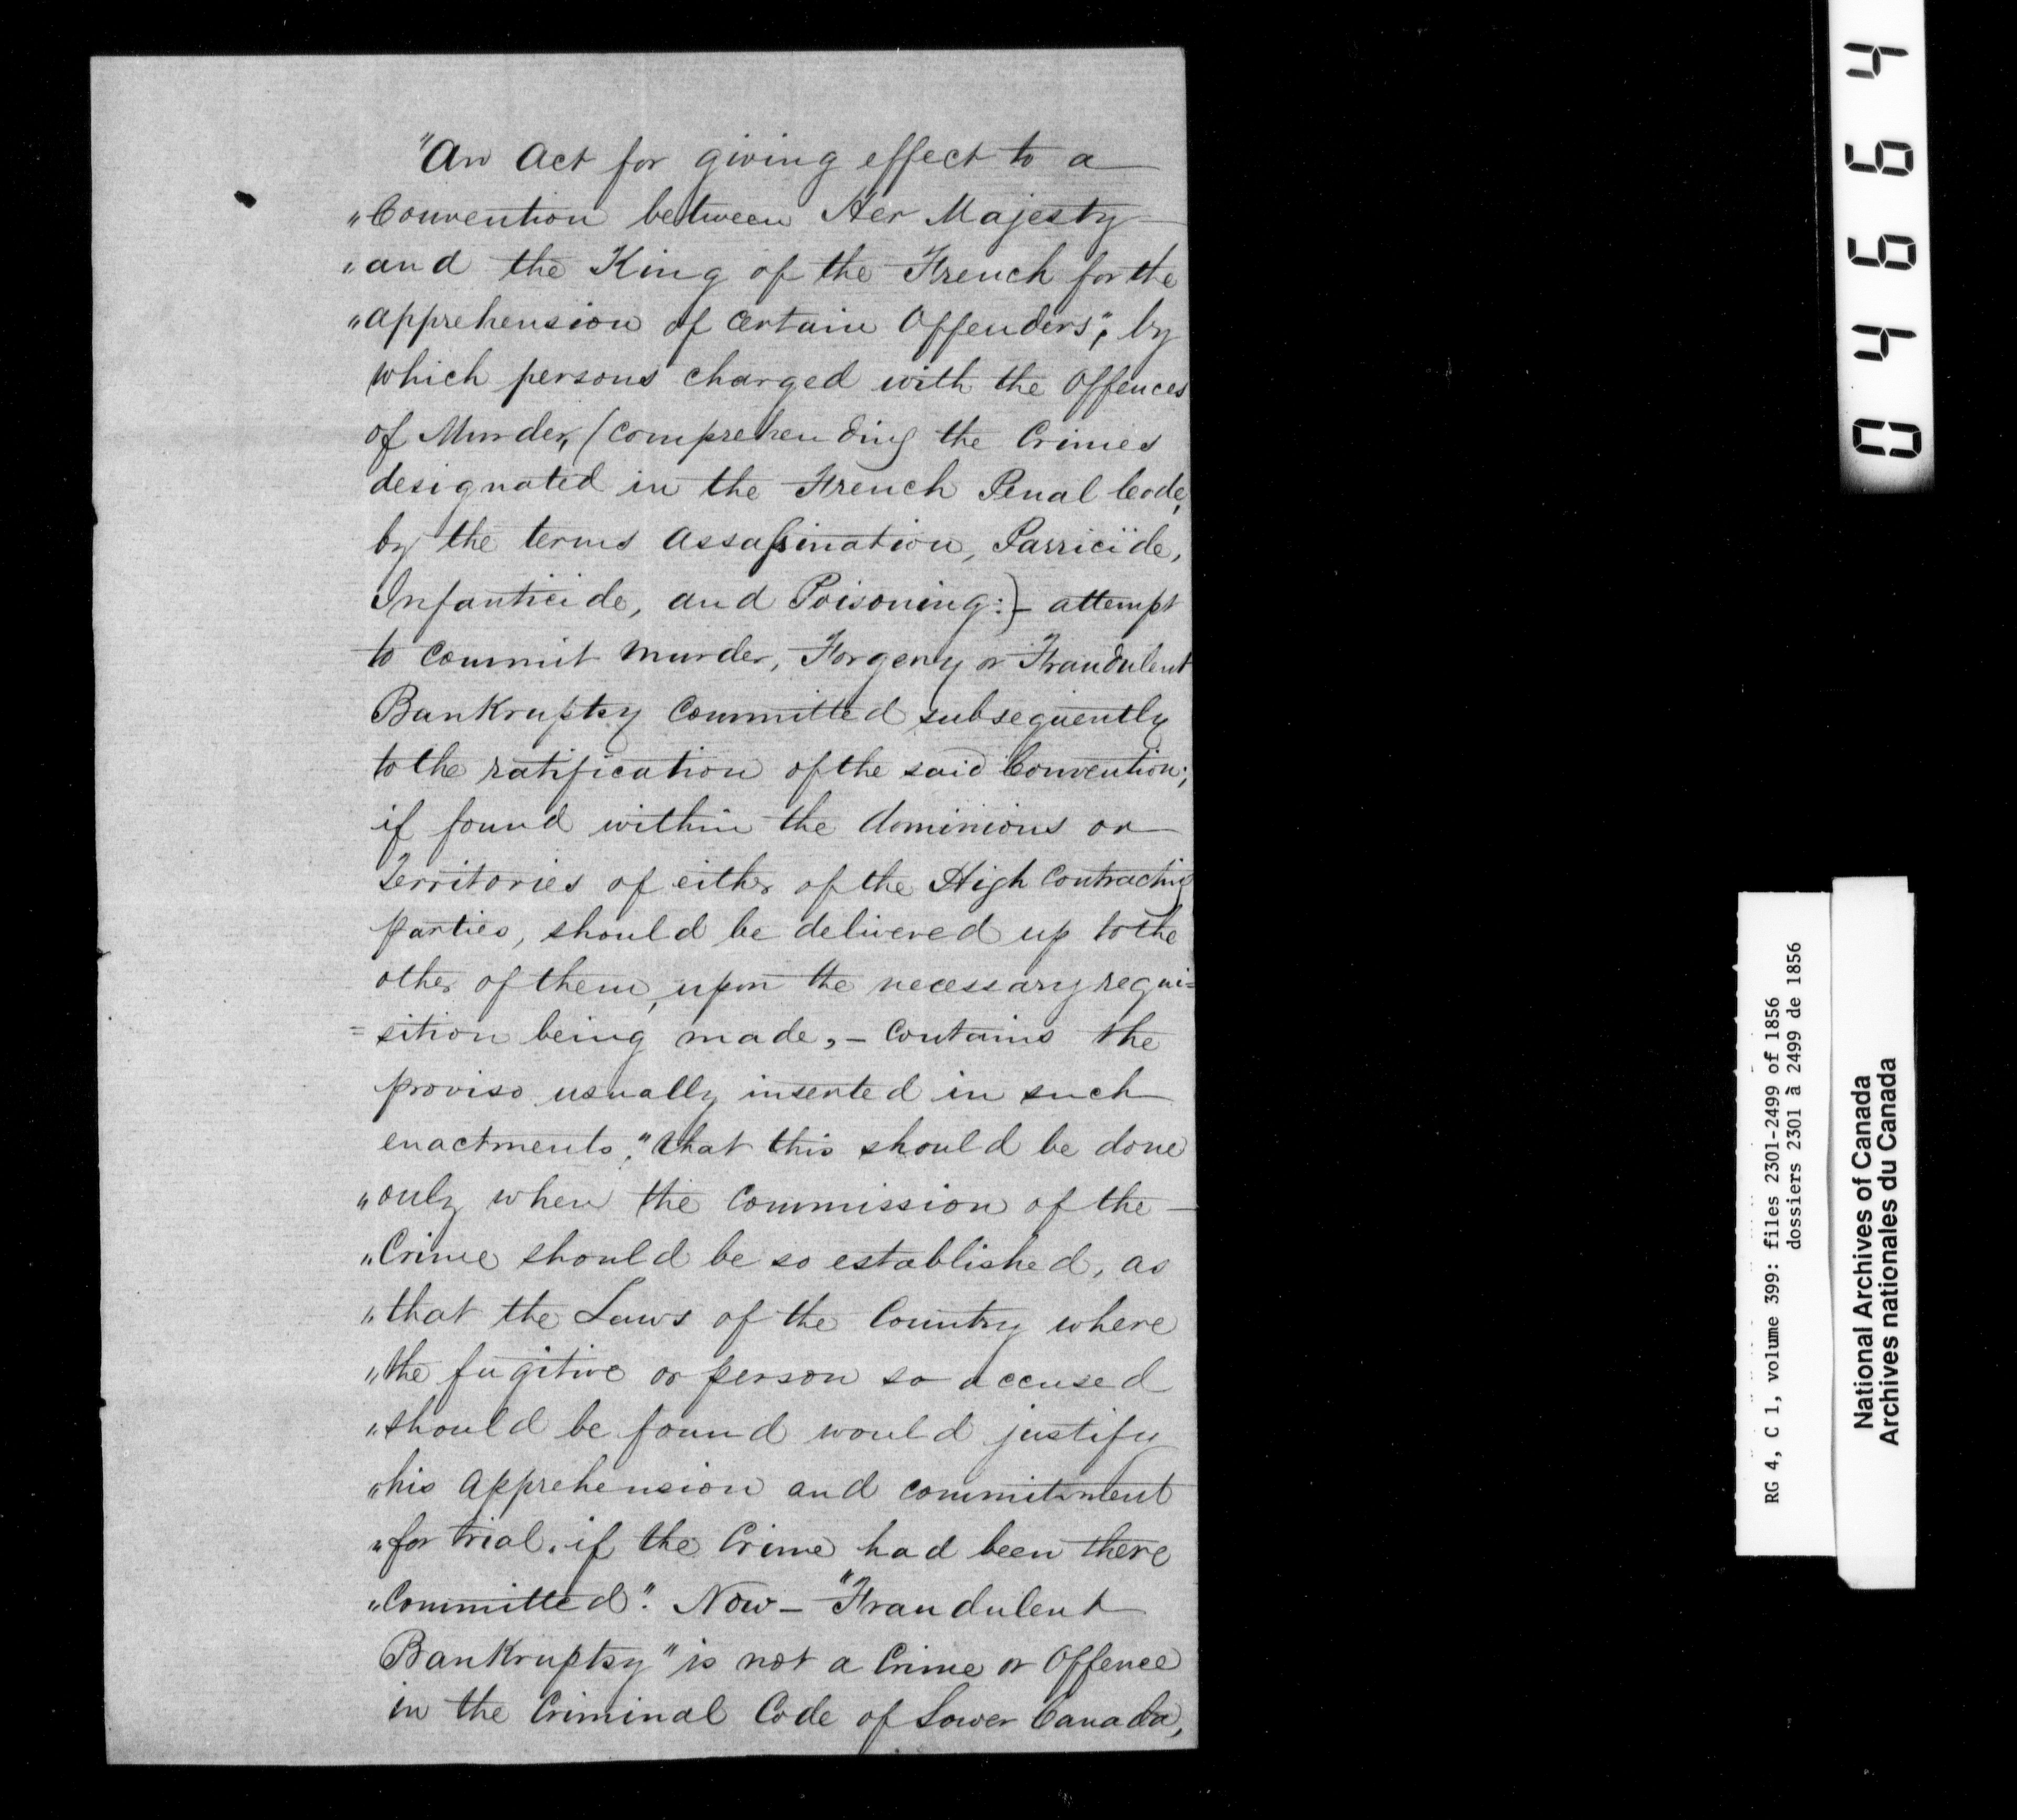 "An Act for giving effect to a
"Convention between Her Majesty
"and the King of the French for the
"apprehension of certain Offenders", by
which persons charged with the Offences
of Murder, (comprehending the Crimes
designated in the French Penal Code,
by the terms Assassination, Parricide,
Infanticide, and Poisoning:)– attempt
to commit Murder, Forgery or Fraudulent
Bankruptsy Committed subsequently
to the ratification of the said Convention;
if found within the dominions or
Territories of either of the High Contracting
parties, should be delivered up to the
other of them, upon the necessary requi=
=sition being made,– Contains the
proviso usually inserted in such
enactments, "that this should be done
"only when the Commission of the
"Crime should be so established, as
"that the Laws of the Country where
"the fugitive or person so accused
"should be found would justify
"his apprehension and commitment
"for trial, if the Crime had been there
"Committed". Now– "Fraudulent
Bankruptsy" is not a Crime or Offence
in the Criminal Code of Lower Canada,
04664
RG 4, C 1, volume 399: files 2301-2499 of 1856
dossiers 2301 à 2499 de 1856
National Archives of Canada
Archives nationales du Canada